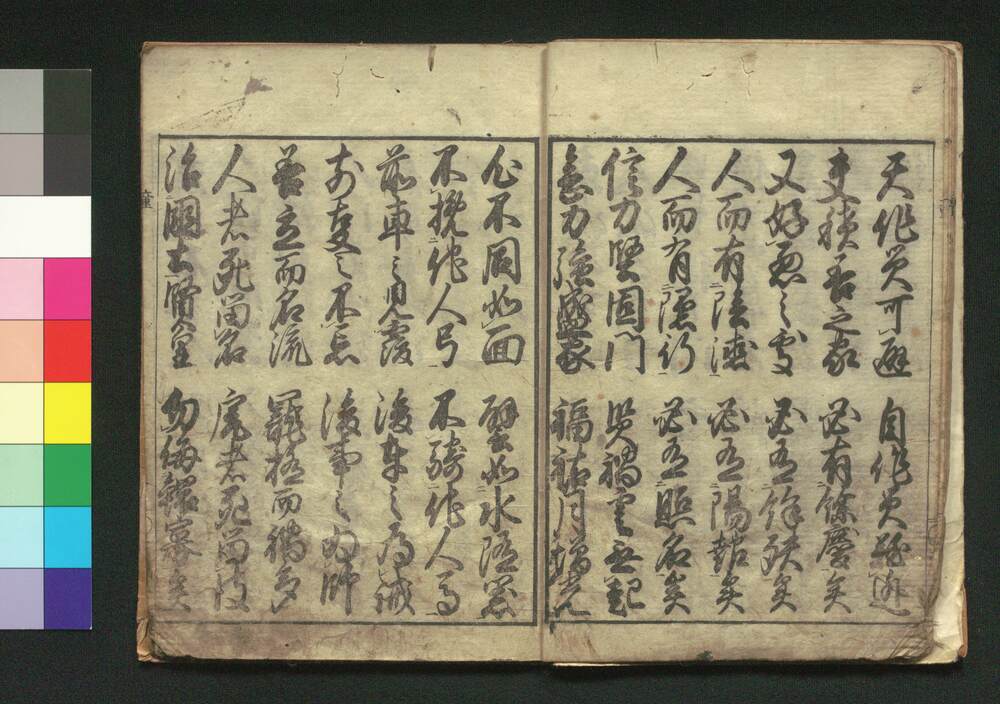 天作災可避 自作災難逃
夫積善之家 必有餘慶矣
又好悪之処 必有餘殃矣
人而有陰徳 必有陽報矣
人而有隠行 必有照名矣
信力堅固門 災禍雲無起
念力強盛家 福祐月増光
心不同如面 譬如水随器
不挽他人弓 不騎他人馬
前車之見覆 後車之為誡
前事之不忘 後事之為師
善立而名流 寵極而禍多
人者死留名 虎者死留皮
治國土賢皇 勿侮鰥寡矣